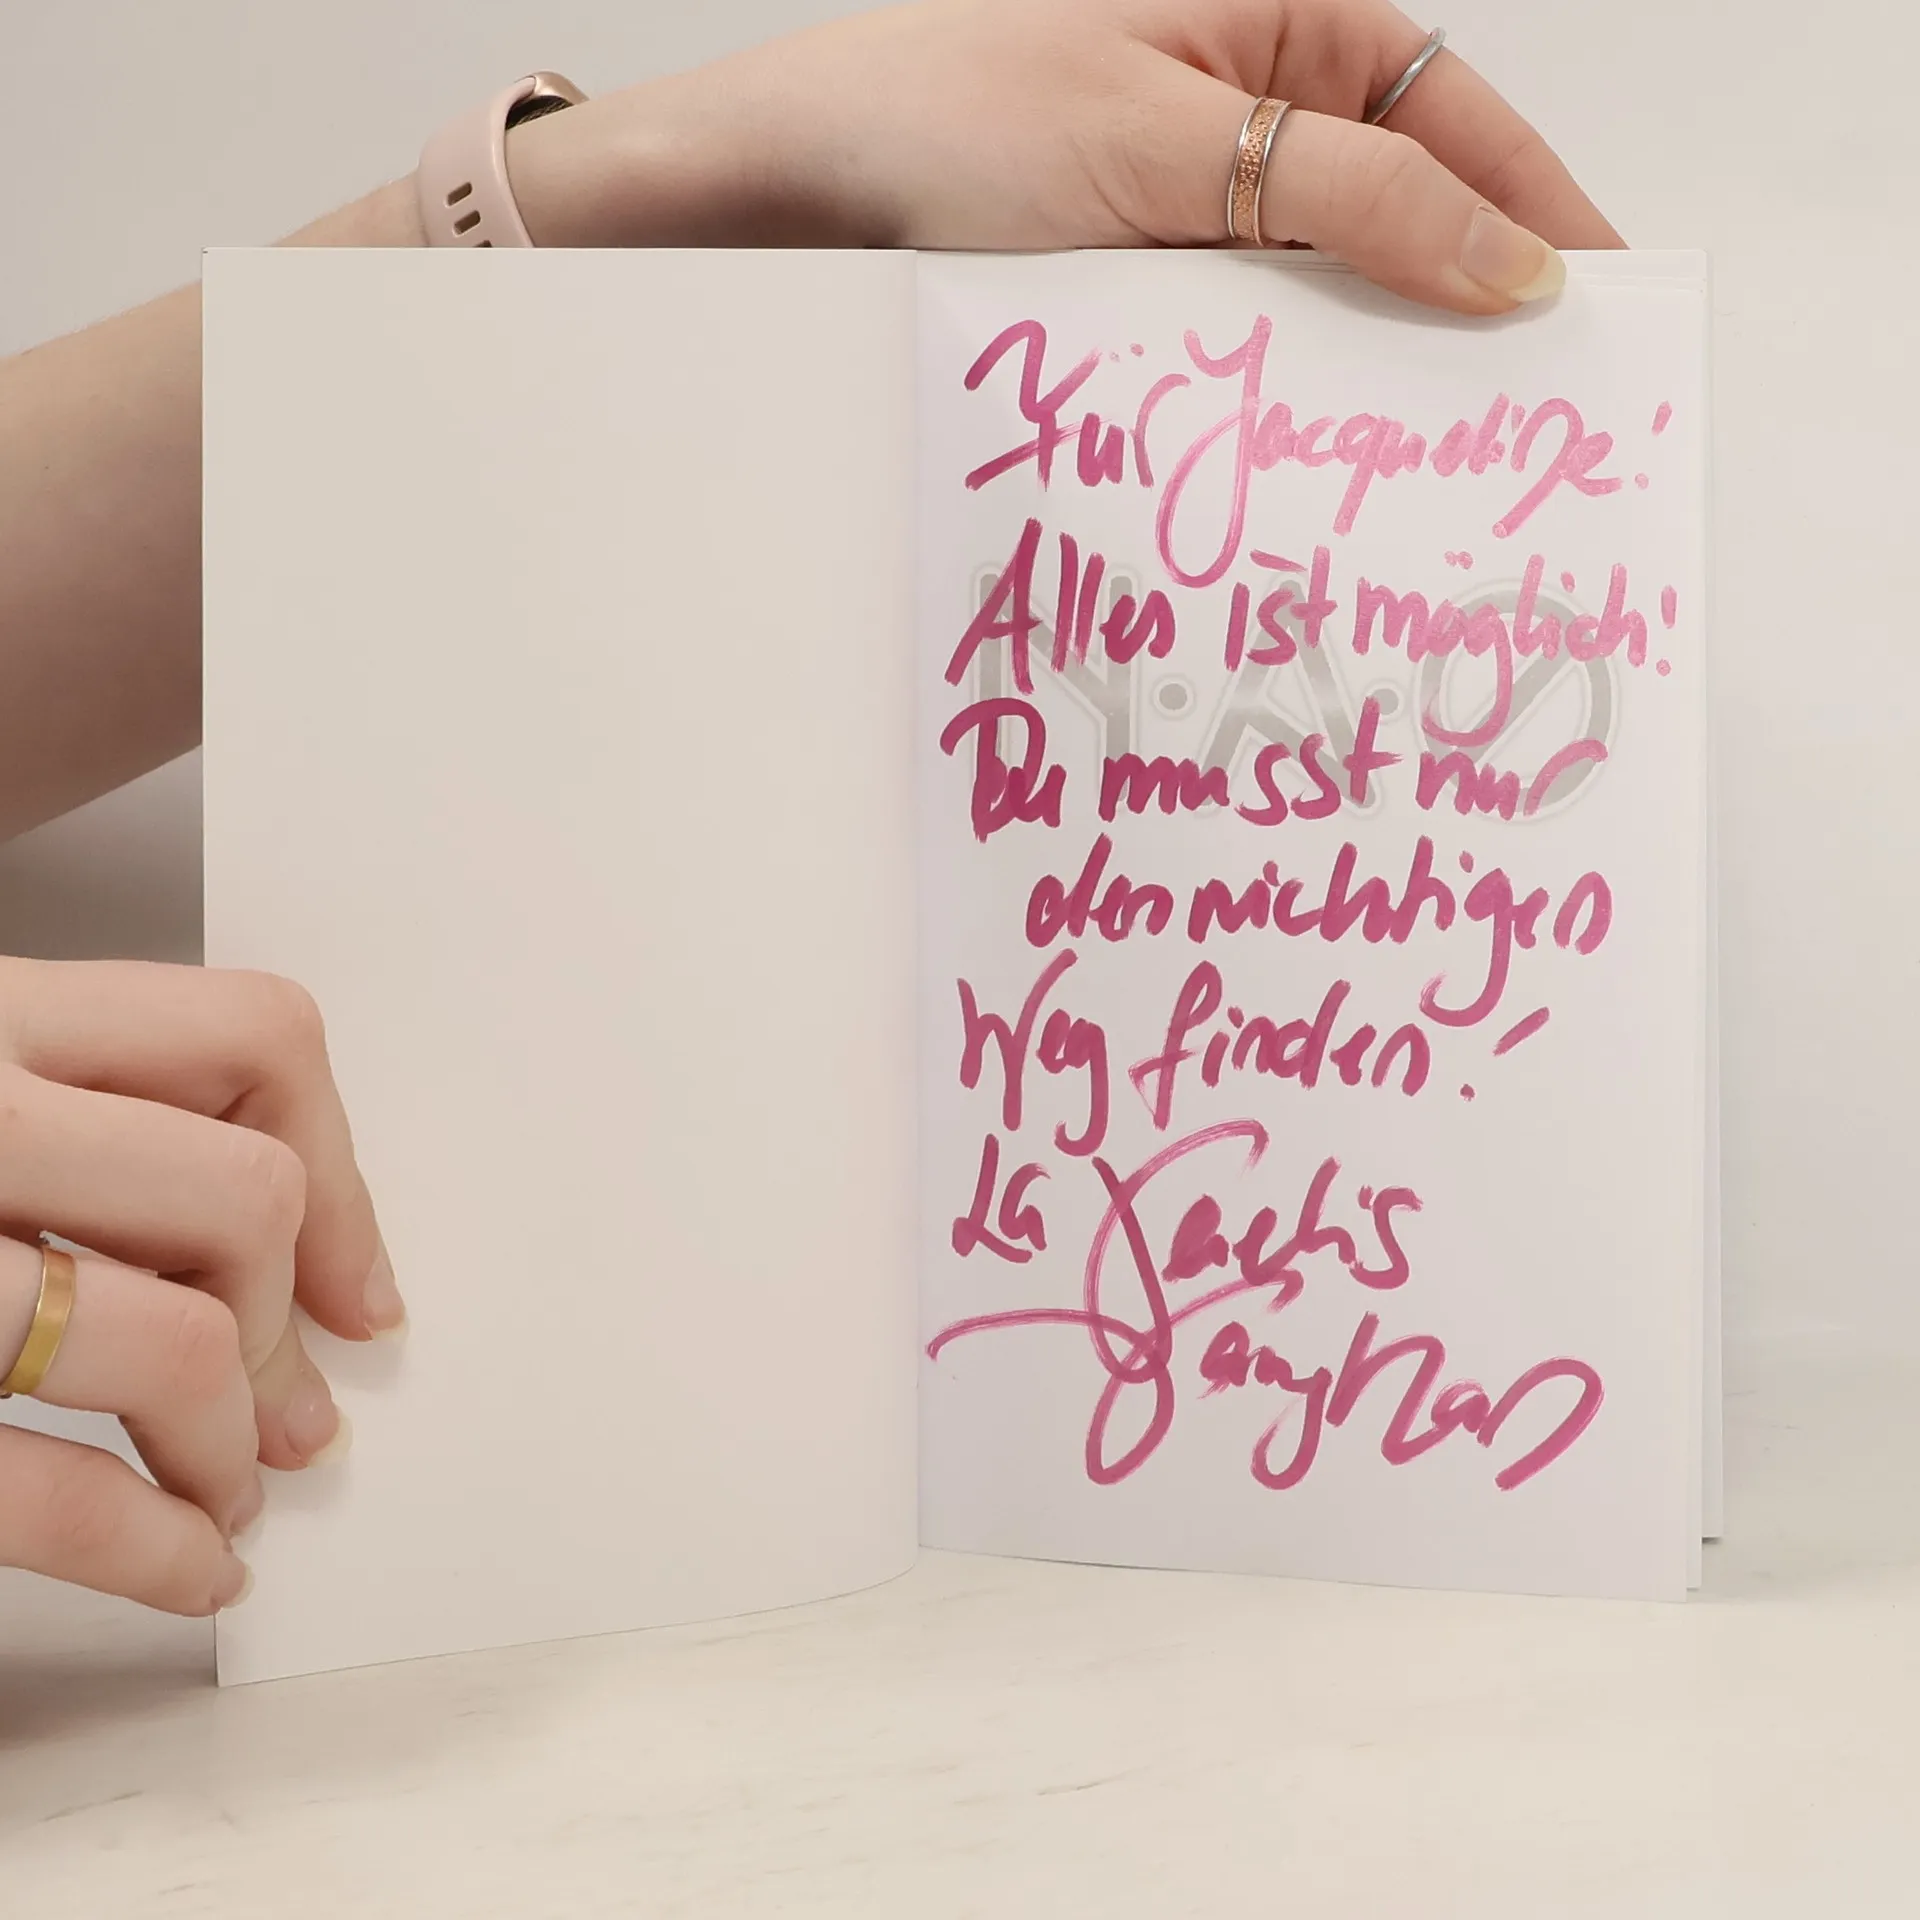 Für Jacqueline!
Alles ist möglich!
Du musst nur
den richtigen
Weg finden!
La